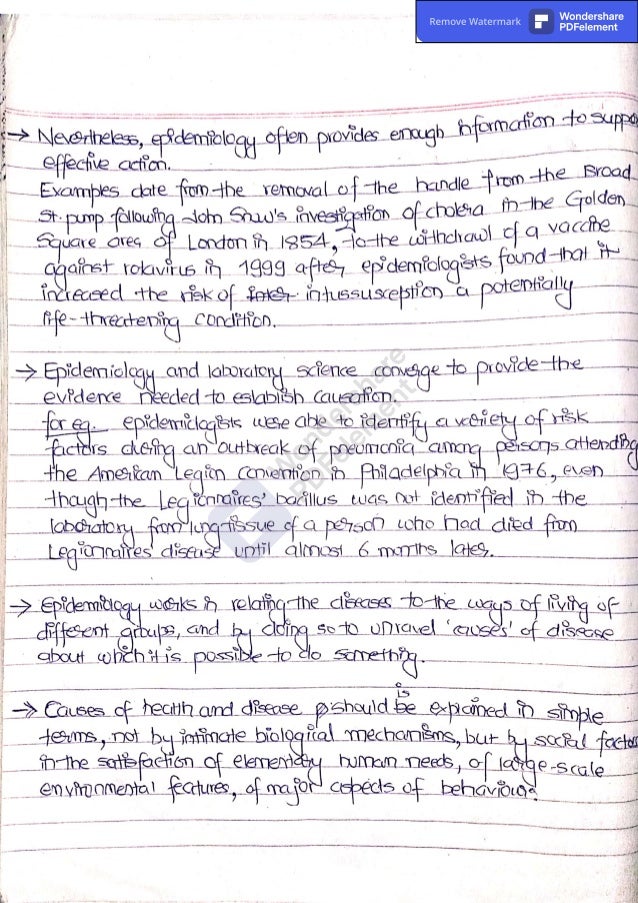 Remove Watermark
Wondershare
PDFelement
→ Nevertheless, epidemiology often provides enough information to suppo
effective action.
Examples date from the removal of the handle from the Broad
St. pump following John Snow's investigation of cholera in the Golden
Square area of London in 1854, to the withdrawl of a vaccine
against rotavirus in 1999 after epidemiologists found that it
increased the risk of inter intussusception a potentially
life-threatening condition.
→ Epidemiology and laboratory science converge to provide the
evidence needed to establish causation.
for eg. epidemiologists were able to identify a variety of risk
factors during an outbreak of pneumonia among persons attending
the American Legion Convention in Philadelphia in 1976, even
though the Legionnaires' bacillus was not identified in the
laboratory from lung tissue of a person who had died from
Legionnaires' disease until almost 6 months later.
→ Epidemiology works in relating the diseases to the ways of living of
different groups, and by doing so to unravel 'causes' of disease
about which it is possible to do something.
→ Causes of health and disease should is be explained in simple
terms, not by intimate biological mechanisms, but by social factors
in the satisfaction of elementary human needs, of large-scale
environmental features, of major aspects of behaviour.
Wondershare
PDFelement